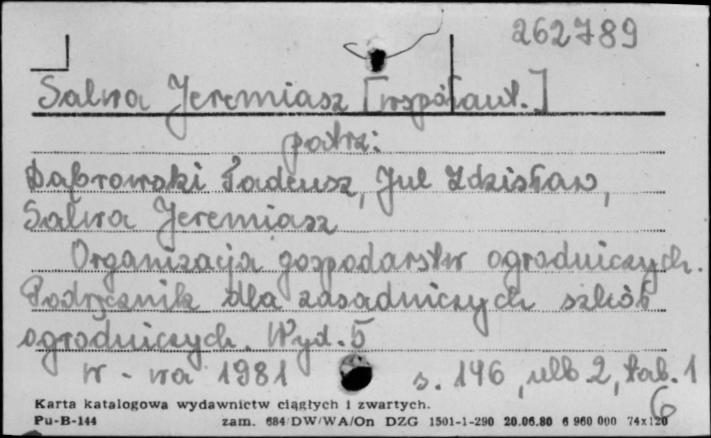 262789
Salwa Jeremiasz [współaut.]
patrz:
Dąbrowski Tadeusz, Jul Zdzisław,
Salwa Jeremiasz
Organizacja gospodarstw ogrodniczych.
Podręcznik dla zasadniczych szkół
ogrodniczych. Wyd. 5
W-wa 1981 s. 146, nlb 2, tab. 1
6
Karta katalogowa wydawnictw ciągłych i zwartych.
Pu-B-144 zam. 684/DW/WA/On DZG 1501-1-290 20.06.80 6 960 000 74x120